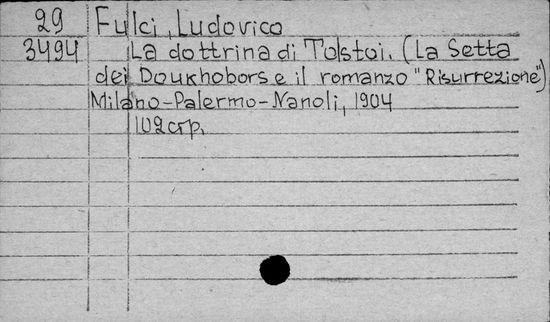 29 Fulci, Ludovico
3494 La dottrina di Tolstoi. (La Setta
dei Doukhobors e il romanzo "Risurrezione")
Milano-Palermo-Nanoli, 1904
102 стр.